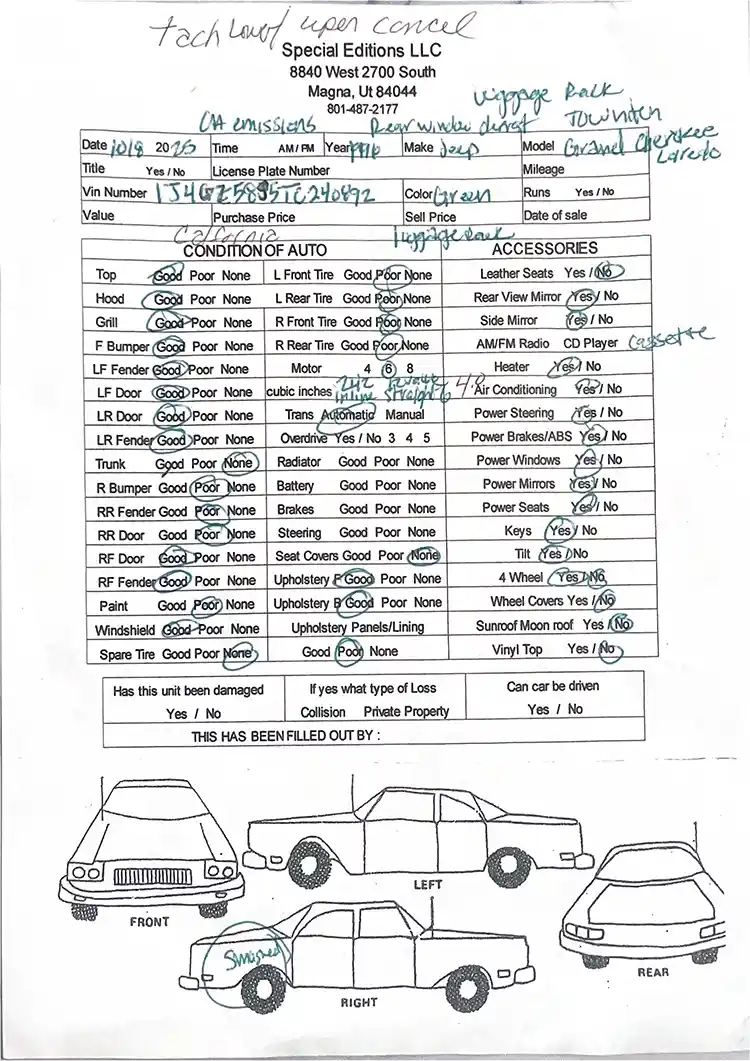 tach lower uper cancel
Special Editions LLC
8840 West 2700 South
Magna, Ut 84044
801-487-2177
Luggage Rack
CA emissions Rear window defrost Tow hitch
Date 10/8 2025 Time AM / PM Year 1996 Make Jeep Model Grand Cherokee Laredo
Title Yes / No License Plate Number Mileage
Vin Number 1J4GZ58S5TC240892 Color Green Runs Yes / No
Value Purchase Price Sell Price Date of sale
California Luggage Rack
CONDITION OF AUTO ACCESSORIES
Top Good Poor None L Front Tire Good Poor None Leather Seats Yes / No
Hood Good Poor None L Rear Tire Good Poor None Rear View Mirror Yes / No
Grill Good Poor None R Front Tire Good Poor None Side Mirror Yes / No
F Bumper Good Poor None R Rear Tire Good Poor None AM/FM Radio CD Player Cassette
LF Fender Good Poor None Motor 4 6 8 Heater Yes / No
LF Door Good Poor None cubic inches 242 inline straight 6 4.0 Air Conditioning Yes / No
LR Door Good Poor None Trans Automatic Manual Power Steering Yes / No
LR Fender Good Poor None Overdrive Yes / No 3 4 5 Power Brakes/ABS Yes / No
Trunk Good Poor None Radiator Good Poor None Power Windows Yes / No
R Bumper Good Poor None Battery Good Poor None Power Mirrors Yes / No
RR Fender Good Poor None Brakes Good Poor None Power Seats Yes / No
RR Door Good Poor None Steering Good Poor None Keys Yes / No
RF Door Good Poor None Seat Covers Good Poor None Tilt Yes / No
RF Fender Good Poor None Upholstery F Good Poor None 4 Wheel Yes / No
Paint Good Poor None Upholstery B Good Poor None Wheel Covers Yes / No
Windshield Good Poor None Upholstery Panels/Lining Sunroof Moon roof Yes / No
Spare Tire Good Poor None Good Poor None Vinyl Top Yes / No
Has this unit been damaged If yes what type of Loss Can car be driven
Yes / No Collision Private Property Yes / No
THIS HAS BEEN FILLED OUT BY :
LEFT
FRONT
Smashed
REAR
RIGHT